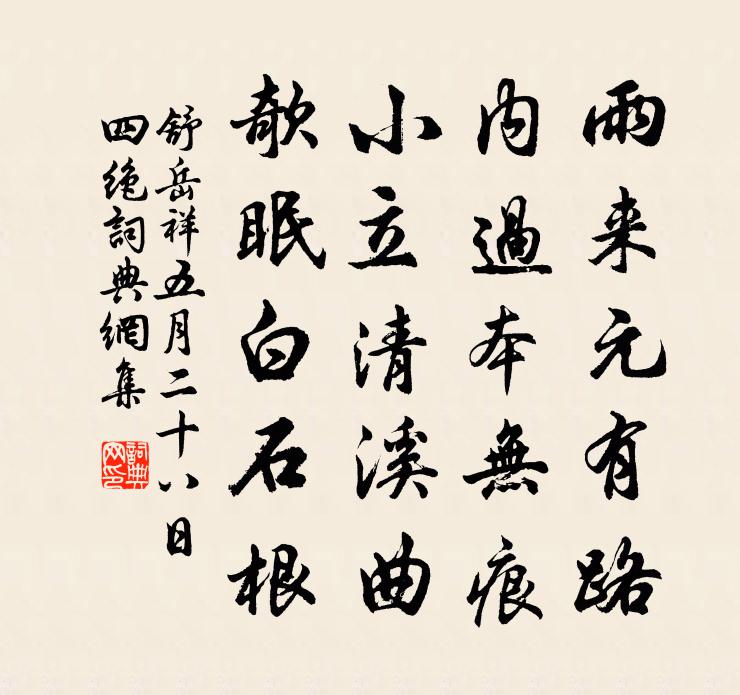 雨来元有路
内過本無痕
小立清溪曲
欹眠白石根
舒岳祥五月二十八日
四绝詞典網集
詞典
网印